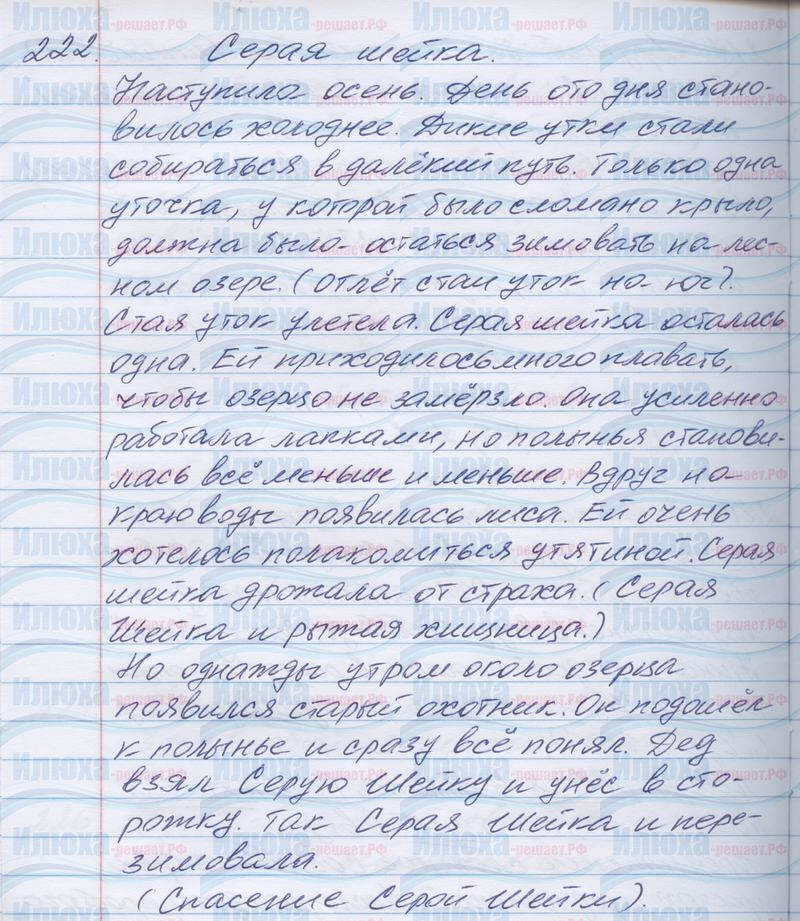 222. Серая шейка.
Наступила осень. День ото дня стано-
вилось холоднее. Дикие утки стали
собираться в далёкий путь. Только одна
уточка, у которой было сломано крыло,
должна была остаться зимовать на лес-
ном озере. (Отлёт стаи уток на юг).
Стая уток улетела. Серая шейка осталась
одна. Ей приходилось много плавать,
чтобы озерцо не замёрзло. Она усиленно
работала лапками, но полынья станови-
лась всё меньше и меньше. Вдруг на
краю воды появилась лиса. Ей очень
хотелось полакомиться утятиной. Серая
шейка дрожала от страха. (Серая
Шейка и рыжая хищница.)
Но однажды утром около озерца
появился старый охотник. Он подошёл
к полынье и сразу всё понял. Дед
взял Серую Шейку и унёс в сто-
рожку. Так Серая Шейка и пере-
зимовала.
(Спасение Серой Шейки).